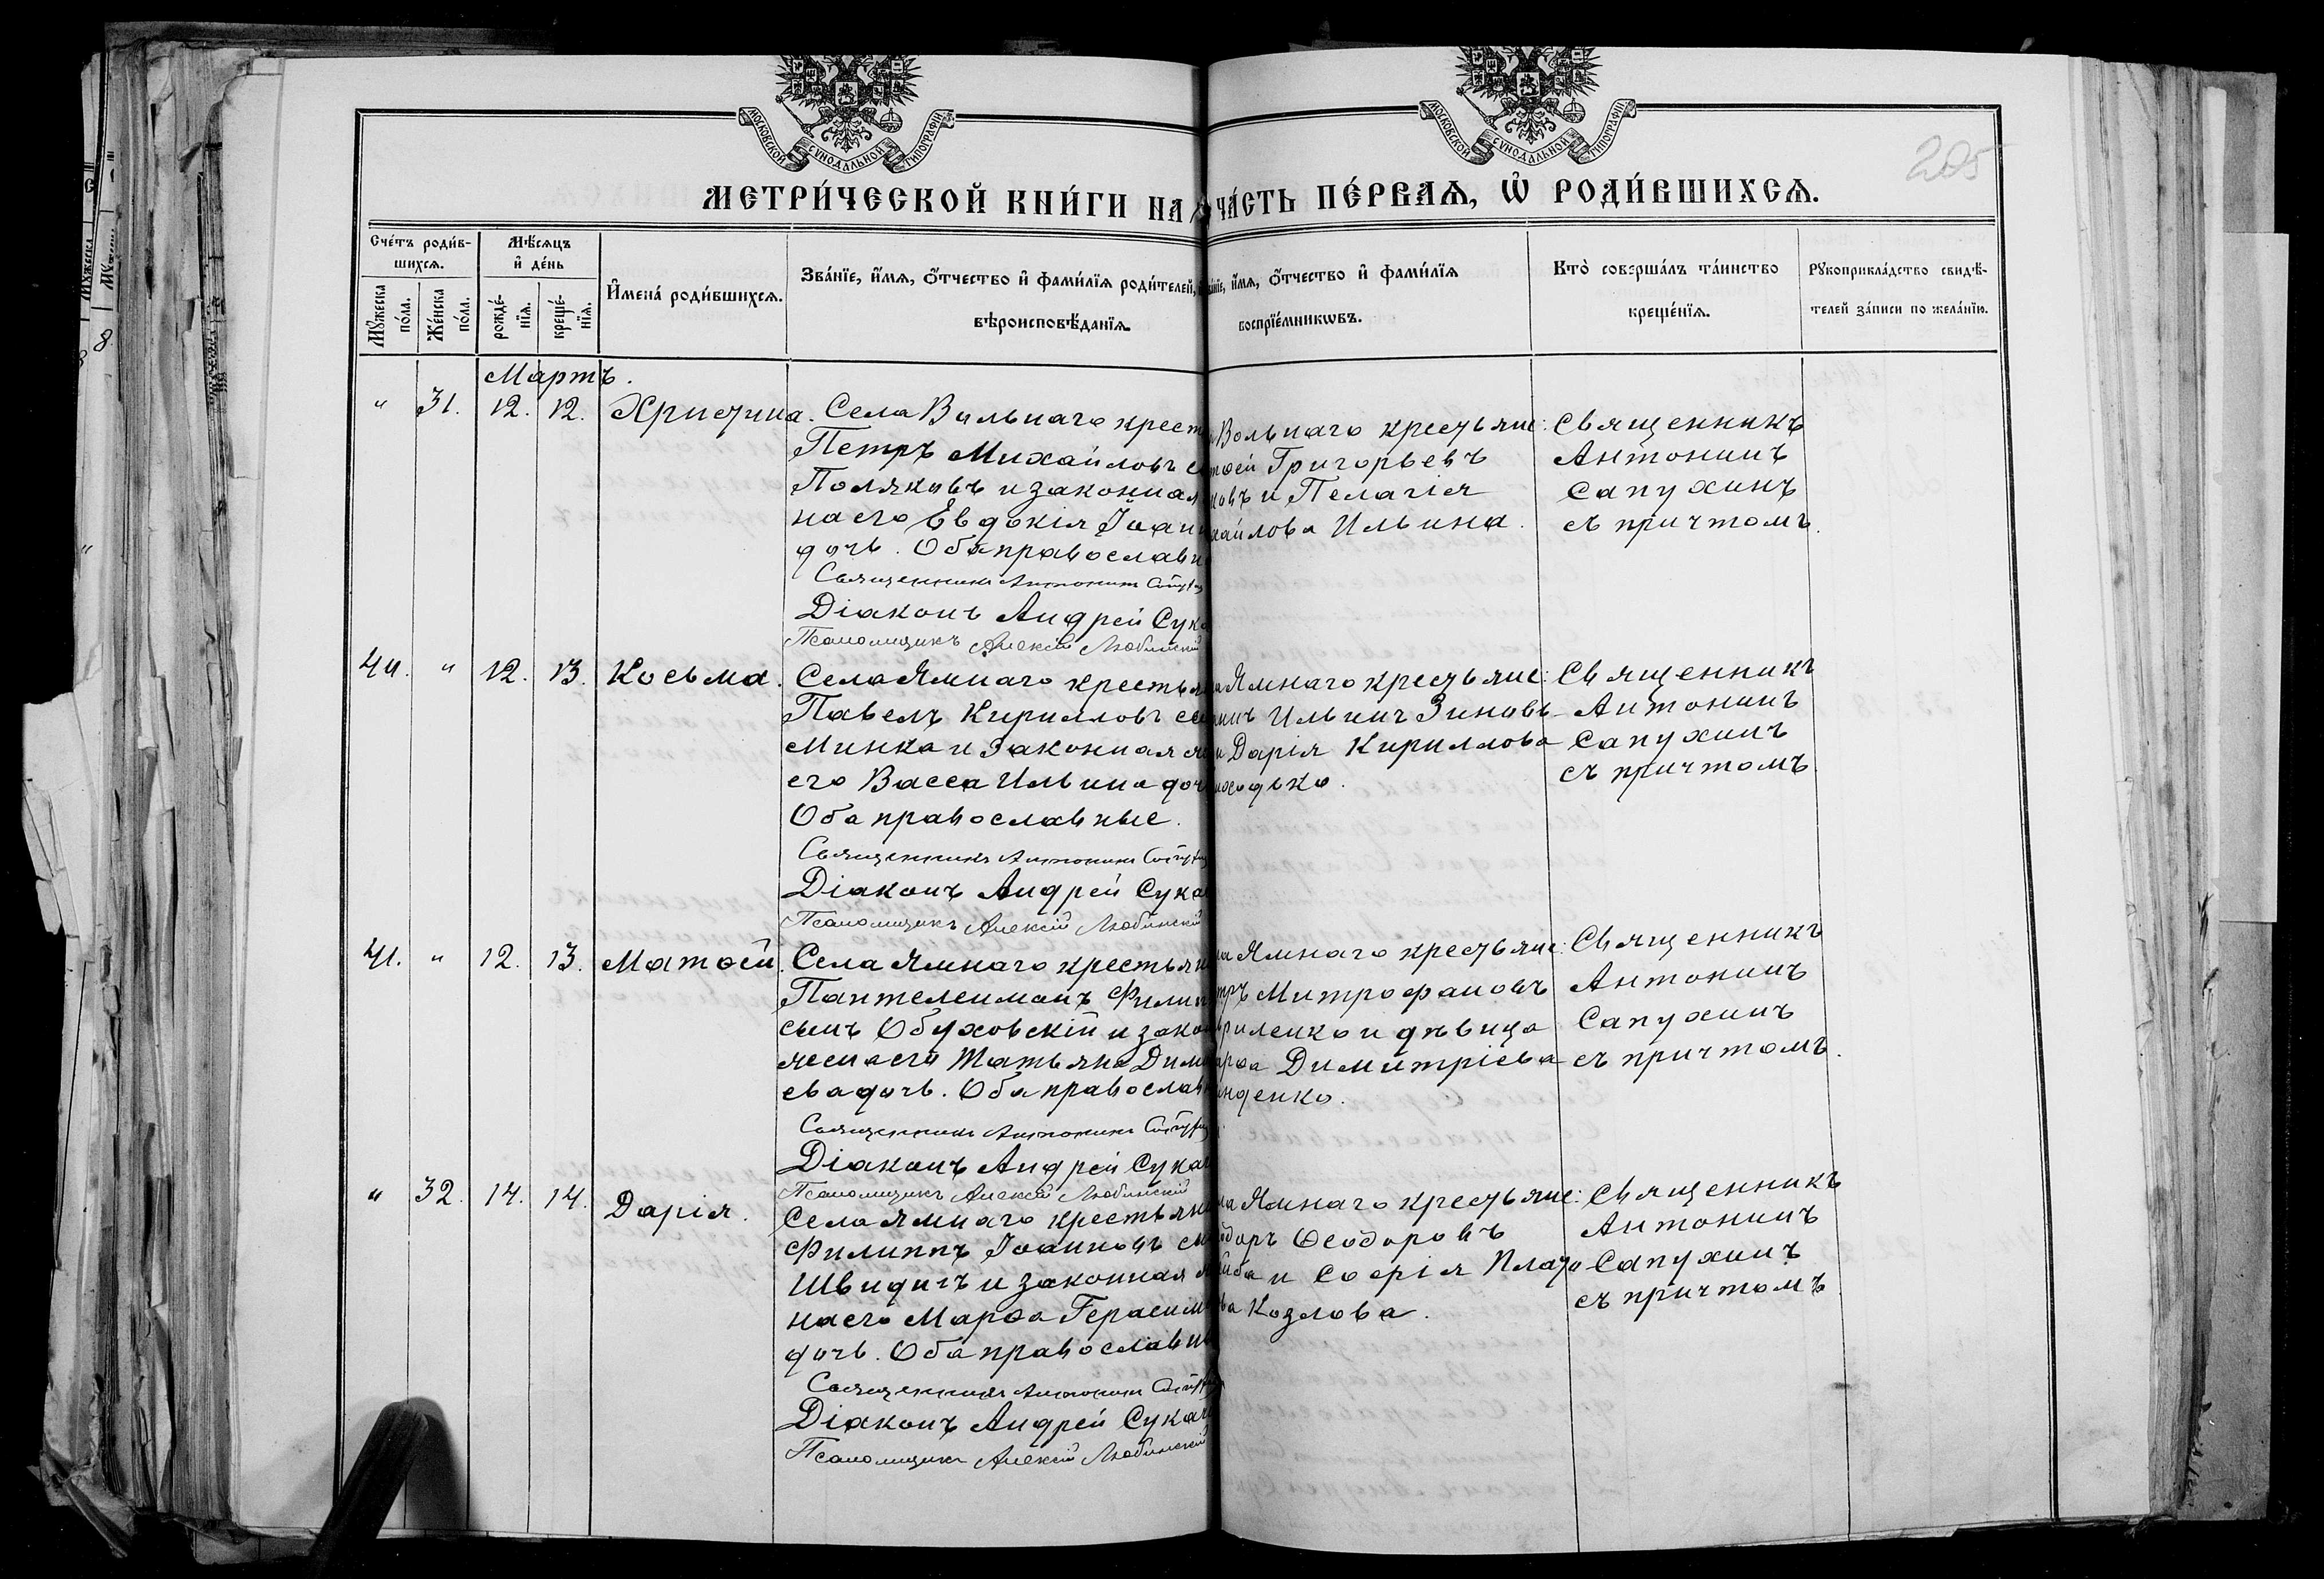 МОСКОВСКОЙ СУНОДАЛЬНОЙ ТИПОГРАФІИ
МОСКОВСКОЙ СУНОДАЛЬНОЙ ТИПОГРАФІИ
205
МЕТРИ́ЧЕСКОЙ КНИ́ГИ НА
ЧА́СТЬ ПЕ́РВАЯ, Ѡ҆ РОДИ́ВШИХСЯ.
Сче́тъ роди́в-
шихся.
Мѣ́сяцъ
и҆ де́нь
Мꙋ́жеска
по́ла.
Же́нска
по́ла.
рожде́-
нїѧ.
креще́-
нїѧ.
И҆мена́ роди́вшихсѧ.
Зва́нїе, и҆́мѧ, ѻ҆́тчество и҆ фами́лїѧ роди́телей,
вѣроисповѣ́данїѧ.
и҆́мѧ, ѻ҆́тчество и҆ фами́лїѧ
воспрїе́мникѡвъ.
Кто̀ соверша́лъ та́инство
креще́нїѧ.
Рꙋкоприкла́дство свидѣ́-
телей за́писи по жела́нїю.
Мартъ.
" 31. 12. 12. Христина.
Села Вольнаго крест
Петръ Михайловъ с
Поляковъ и законная
на его Евдокія Іоанн
дочь. Оба православн
Священникъ Антонинъ Сапух
Діаконъ Андрей Сук
Псаломщикъ Алексій Любинскій
Вольнаго крестьяне:
Григорьевъ
овъ и Пелагія
хайлова Ильина.
Священникъ
Антонинъ
Сапухинъ
съ причтомъ.
40. " 12. 13. Косьма.
Села Ямнаго крестьян
Павелъ Кирилловъ сы
Минка и законная ж
его Васса Ильина доч
Оба православные.
Священникъ Антонинъ Сапух
Діаконъ Андрей Сука
Псаломщикъ Алексій Любинскій
Ямнаго крестьяне:
Ильинъ Зиновь
и Дарія Кириллова
Священникъ
Антонинъ
Сапухинъ
съ причтомъ.
41. " 12. 13. Матѳей.
Села Ямнаго крестьян
Пантелеимонъ Филип
сынъ Обуховскій и зако
жена его Татьяна Дими
ева дочь. Оба православн
Священникъ Антонинъ Сапух
Діаконъ Андрей Сука
Псаломщикъ Алексій Любинскій
Ямнаго крестьяне:
тръ Митрофановъ
риленко и дѣвица
арѳа Димитріева
нденко.
Священникъ
Антонинъ
Сапухинъ
съ причтомъ.
" 32. 14. 14. Дарія.
Села Ямнаго крестьян
Филиппъ Іоанновъ сы
Швидичъ и законная
на его Марѳа Герасим
дочь. Оба православн
Священникъ Антонинъ Сапух
Діаконъ Андрей Сукач
Псаломщикъ Алексій Любинскій
Ямнаго крестьяне:
доръ Ѳеодоровъ
и Софія Плато
ва Козлова.
Священникъ
Антонинъ
Сапухинъ
съ причтомъ
8.